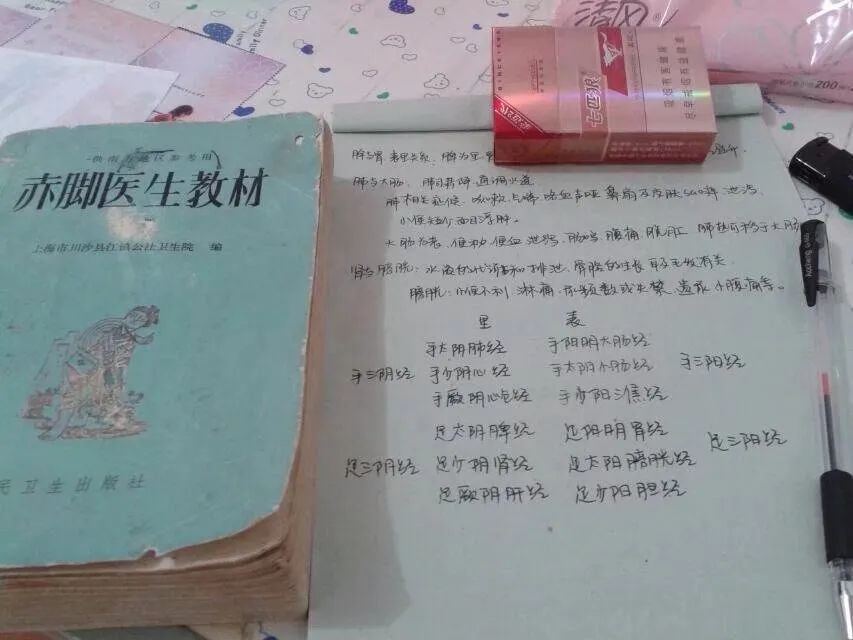 供南方地区参考用
赤脚医生教材
上海市川沙县江镇公社卫生院 编
民卫生出版社
清风
200
七匹狼
脾与胃 表里关系, 脾为里 胃
肺与大肠: 肺司呼吸 通调水道
小便短少 面目浮肿。
大肠 便秘 便血 泄泻 肠鸣 腹痛 脱肛 肺热可移于大肠
肾与膀胱: 水液的代谢和排泄、骨髓的生长
膀胱: 小便不利 淋痛 尿频数或失禁 遗尿 小腹痛等。
里 表
手太阴肺经 手阳明大肠经
手三阴经 手少阴心经 手太阳小肠经 手三阳经
手厥阴心包经 手少阳三焦经
足太阴脾经 足阳明胃经
足三阴经 足少阴肾经 足太阳膀胱经 足三阳经
足厥阴肝经 足少阳胆经